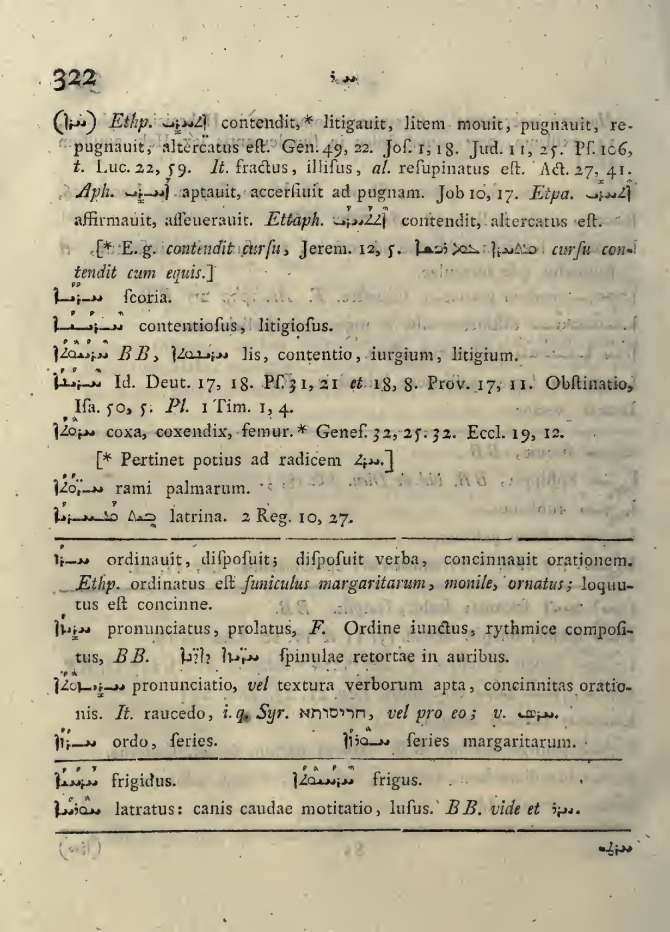 322 ܚܪ
(ܚܪܐ) Ethp. ܐܬܚܪܝ contendit,* litigauit, litem mouit, pugnauit, re-
pugnauit, altercatus eſt. Gen. 49, 22. Joſ. 1, 18. Jud. 11, 25. Pſ. 106,
t. Luc. 22, 59. It. fractus, illiſus, al. reſupinatus eſt. Act. 27, 41.
Aph. ܐܚܪܝ aptauit, accerſiuit ad pugnam. Job 10, 17. Etpa. ܐܬܚܪܝ
affirmauit, aſſeuerauit. Ettaph. ܐܬܬܚܪܝ contendit, altercatus eſt.
[* E. g. contendit curſu, Jerem. 12, 5. curſu con-
tendit cum equis.]
ܚܪܝܐ ſcoria.
contentioſus, litigioſus.
BB, lis, contentio, iurgium, litigium.
ܚܪܝܢܐ Id. Deut. 17, 18. Pſ. 31, 21 et 18, 8. Prov. 17, 11. Obſtinatio,
Iſa. 50, 5. Pl. 1 Tim. 1, 4.
ܚܪܘܬܐ coxa, coxendix, femur.* Geneſ. 32, 25. 32. Eccl. 19, 12.
[* Pertinet potius ad radicem ܚܪܬ.]
ܚܪܘܬܐ rami palmarum.
ܒܝܬ ܡܚܪܝܐ latrina. 2 Reg. 10, 27.
ܚܪܙ ordinauit, diſpoſuit; diſpoſuit verba, concinnauit orationem.
Ethp. ordinatus eſt funiculus margaritarum, monile, ornatus; loquu-
tus eſt concinne.
ܚܪܝܙܐ pronunciatus, prolatus, F. Ordine iunctus, rythmice compoſi-
tus, BB. ſpinulae retortae in auribus.
ܚܪܝܙܘܬܐ pronunciatio, vel textura verborum apta, concinnitas oratio-
nis. It. raucedo, i. q. Syr. חריסותא, vel pro eo; v. ܚܪܣ.
ܚܪܙܐ ordo, ſeries. ſeries margaritarum.
frigidus. frigus.
latratus: canis caudae motitatio, luſus. BB. vide et ܚܪܪ.